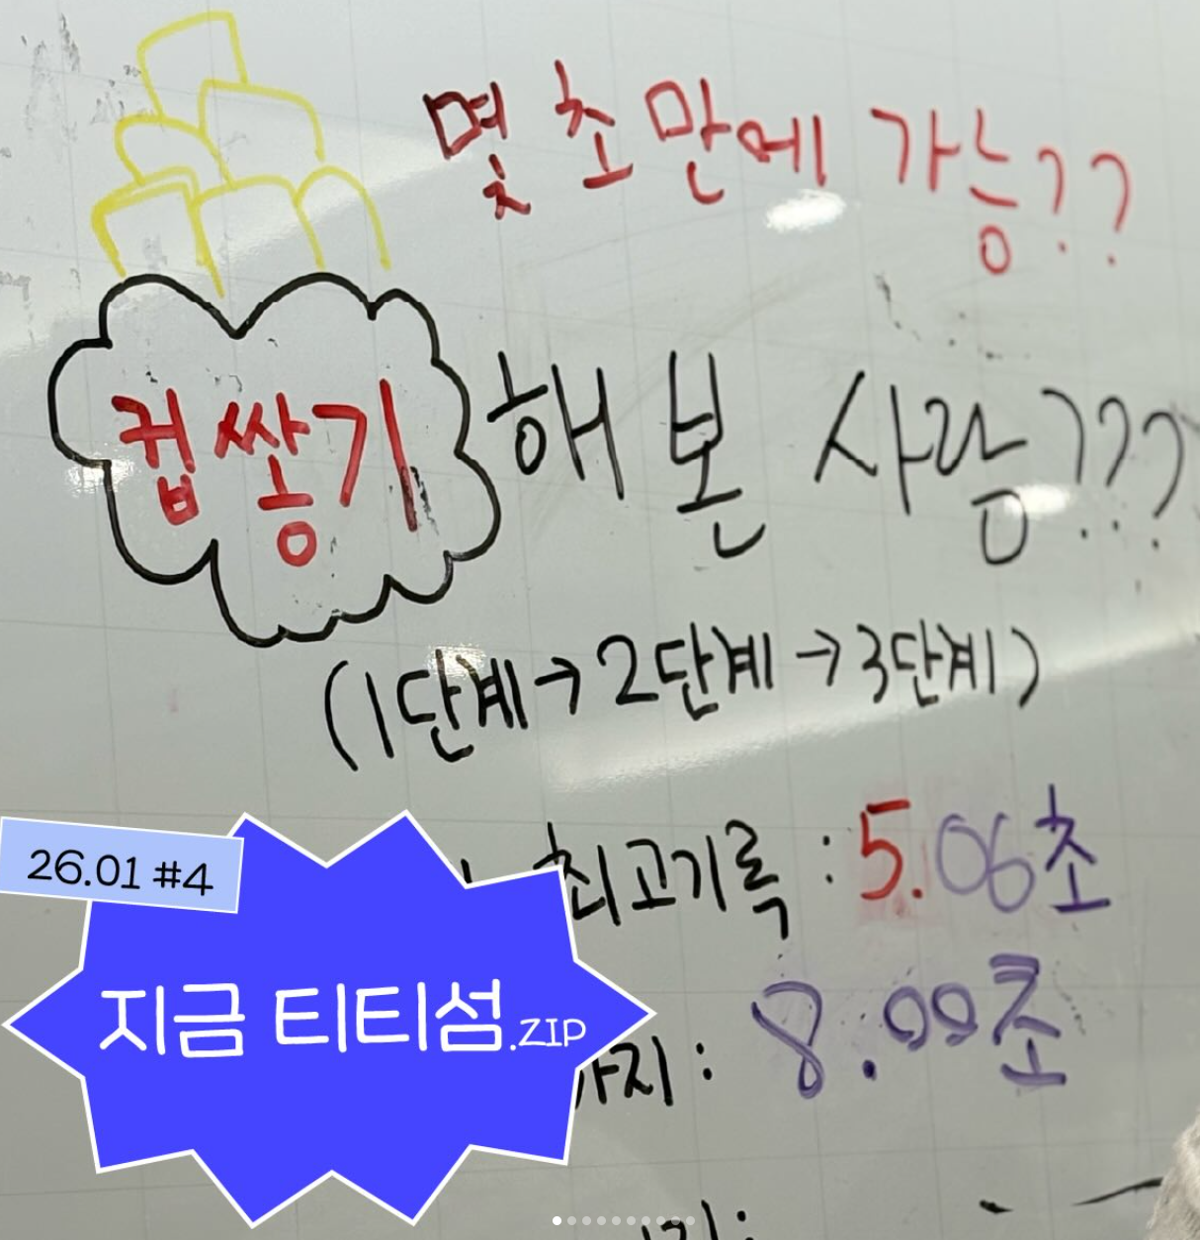 몇 초만에 가능??
컵쌓기 해 본 사람???
(1단계→2단계→3단계)
최고기록 : 5.06초
26.01 #4
지금 티티섬.ZIP
8.00초